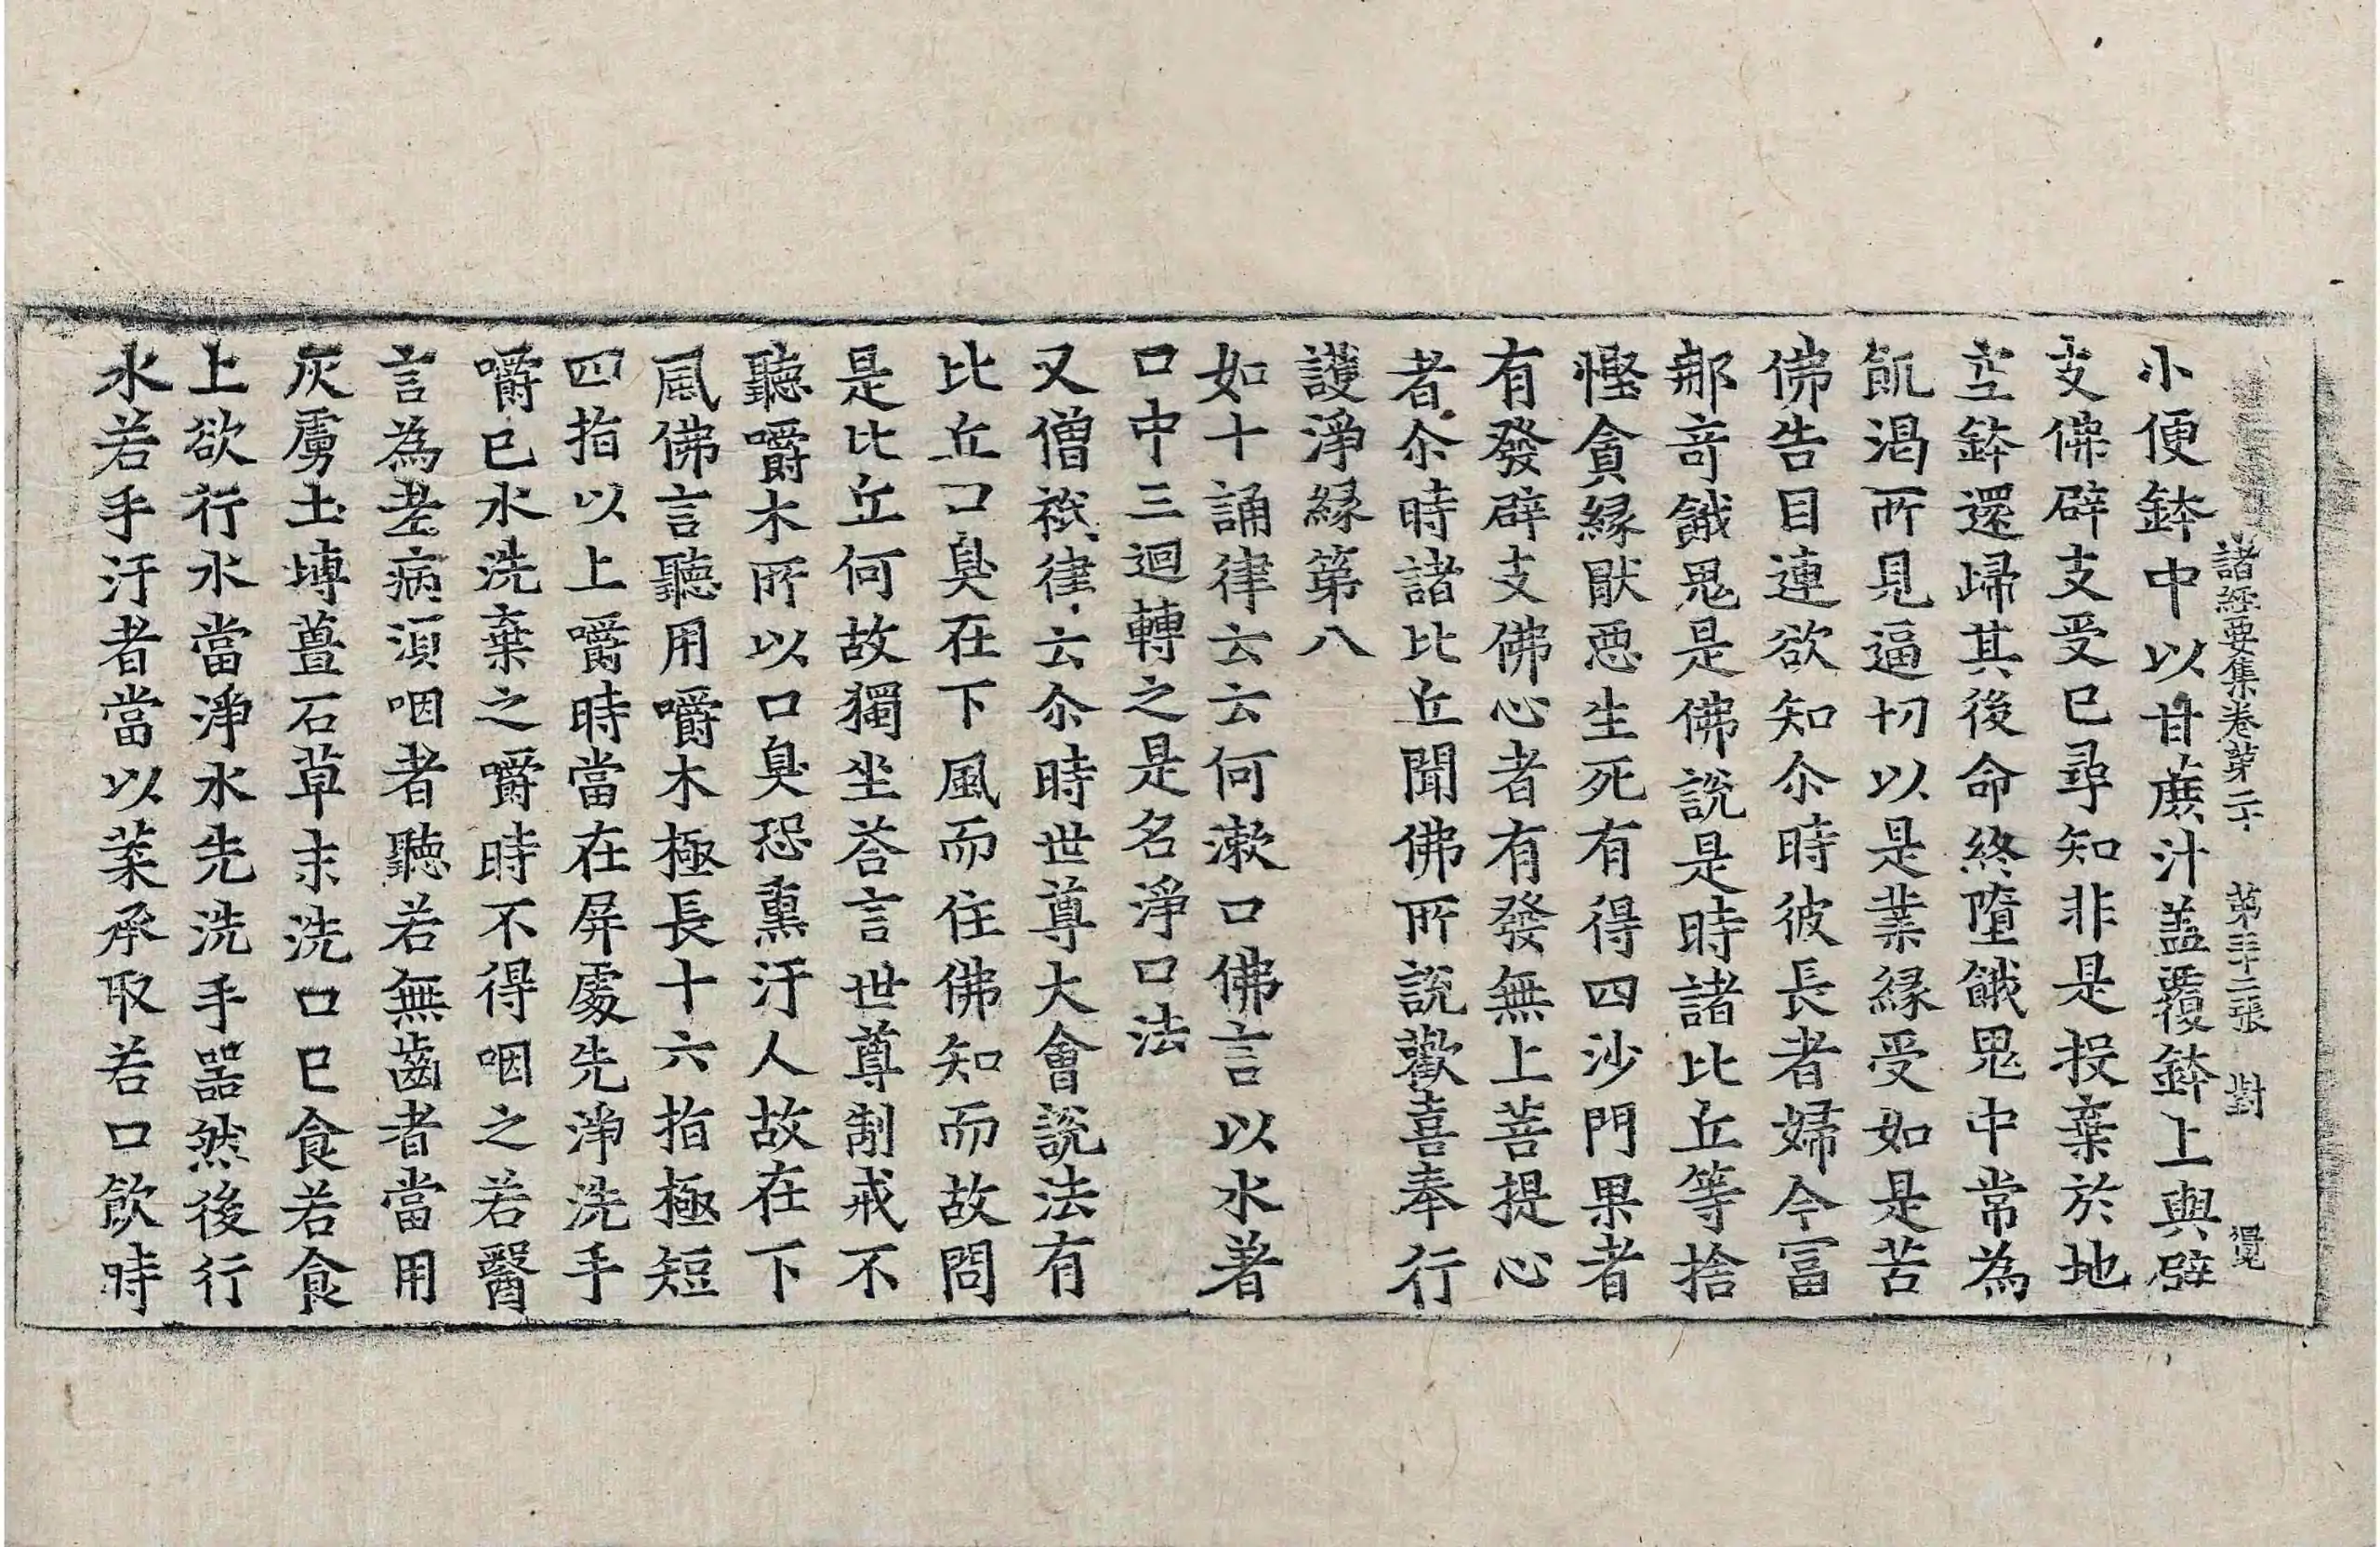 諸經要集卷第二十　第三十二張　對　覺
小便鉢中以甘蔗汁盖覆鉢上與辟
支佛辟支受已尋知非是投棄於地
空鉢還歸其後命終墮餓鬼中常為
飢渴所見逼切以是業緣受如是苦
佛告目連欲知尒時彼長者婦今冨
那竒餓鬼是佛說是時諸比丘等捨
慳貪緣猒惡生死有得四沙門果者
有發辟支佛心者有發無上菩提心
者尒時諸比丘聞佛所說歡喜奉行
護淨緣第八
如十誦律云云何漱口佛言以水著
口中三迴轉之是名淨口法
又僧祇律云尒時世尊大會說法有
比丘口臭在下風而住佛知而故問
是比丘何故獨坐荅言世尊制戒不
聽嚼木所以口臭恐熏汙人故在下
風佛言聽用嚼木極長十六指極短
四指以上嚼時當在屏處先淨洗手
嚼已水洗棄之嚼時不得咽之若醫
言為差病須咽者聽若無齒者當用
灰鹵土塼薑石草末洗口已食若食
上欲行水當淨水先洗手器然後行
水若手汙者當以葉承取若口飲時